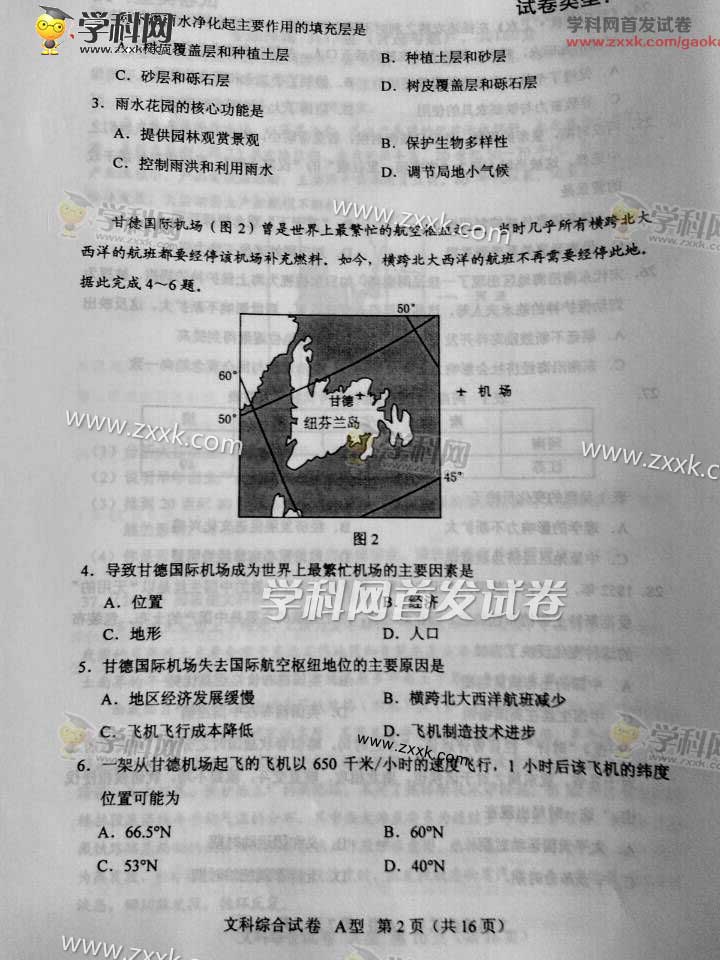 试卷类型:
雨水净化起主要作用的填充层是
树皮覆盖层和种植土层
B. 种植土层和砂层
C. 砂层和砾石层
D. 树皮覆盖层和砾石层
3. 雨水花园的核心功能是
A. 提供园林观赏景观
B. 保护生物多样性
C. 控制雨洪和利用雨水
D. 调节局地小气候
甘德国际机场(图2)曾是世界上最繁忙的航空 当时几乎所有横跨北大
西洋的航班都要经停该机场补充燃料. 如今, 横跨北大西洋的航班不再需要经停此地。
据此完成4~6题。
50°
60°
50°
45°
甘德
纽芬兰岛
+ 机场
图2
4. 导致甘德国际机场成为世界上最繁忙机场的主要因素是
A. 位置
B. 经济
C. 地形
D. 人口
5. 甘德国际机场失去国际航空枢纽地位的主要原因是
A. 地区经济发展缓慢
B. 横跨北大西洋航班减少
C. 飞机飞行成本降低
D. 飞机制造技术进步
6. 一架从甘德机场起飞的飞机以650千米/小时的速度飞行, 1小时后该飞机的纬度
位置可能为
A. 66.5°N
B. 60°N
C. 53°N
D. 40°N
文科综合试卷 A型 第2页(共16页)
学科网
www.zxxk.com
http://
www.zxxk.com/gaoka
学科网
www.zxxk.com
学科网
www.zxxk.com
www.zxxk.com
学科网
www.zxxk.com
学科网首发试卷
学科网
www.zxxk.com
学科网
www.zxxk.com
www.zxxk.com